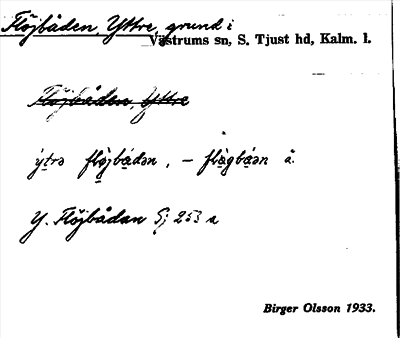 Flöjbåden, Yttre, grund i
Västrums sn, S. Tjust hd, Kalm. l.
Flöjbåden, Yttre
ýtrə flö̀jbådən, – flàgbåən å.
Y. Flöjbådan Sj 253 a
Birger Olsson 1933.